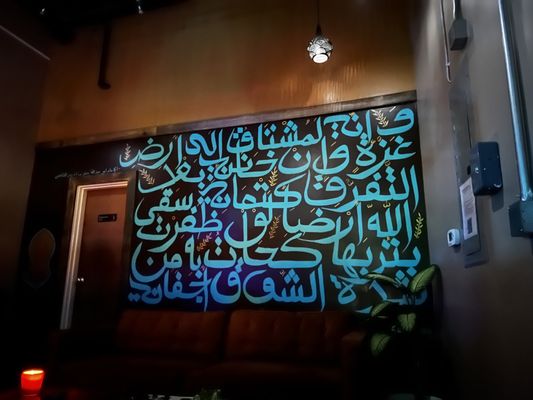 وإني لمشتاق إلى أرض
غزة وإن خانني بعد
التفرق كتماني سقى
الله أرضا لو ظفرت
بتربها كحلت به من
شدة الشوق أجفاني